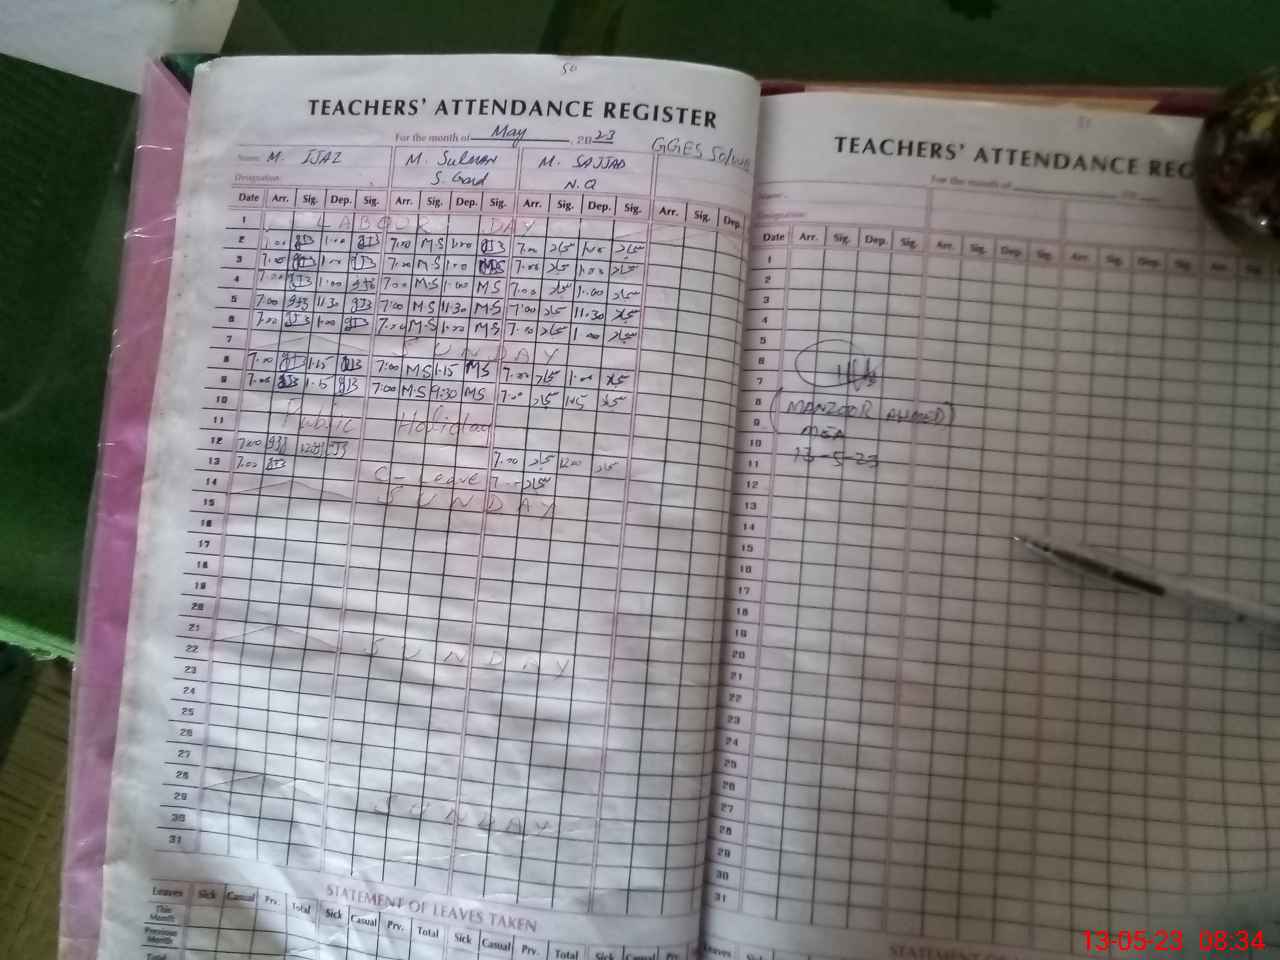 50
TEACHERS' ATTENDANCE REGISTER
For the month of May, 2023
GGES
Name: M. IJAZ M. Sulman M. SAJJAD
Designation: S. Gard N.Q
Date Arr. Sig. Dep. Sig. Arr. Sig. Dep. Sig. Arr. Sig. Dep. Sig. Arr. Sig. Dep.
1 LABOUR DAY
2 7.00 1.00 7.00 M.S 1.00 7.00 1.00
3 7.00 1.00 7.00 M.S 1.00 MS 7.00 1.00
4 7.00 1.00 7.00 M.S 1.00 M.S 7.00 1.00
5 7.00 11.30 7.00 M.S 11.30 M.S 7.00 11.30
6 7.00 1.00 7.00 M.S 1.00 M.S 7.00 1.00
7 SUNDAY
8 7.00 1.15 7.00 M.S 1.15 MS 7.00 1.00
9 7.00 1.15 7.00 M.S 9.30 M.S 7.00 1.15
10
11 Public Holiday
12 7.00 7.00 12.00
13 7.00 C-Leave 7.00
14 SUNDAY
15
16
17
18
19
20
21 SUNDAY
22
23
24
25
26
27
28 SUNDAY
29
30
31
STATEMENT OF LEAVES TAKEN
Leaves Sick Casual Prv. Total Sick Casual Prv. Total Sick Casual Prv. Total Sick Casual Prv.
This Month
Previous Month
Total
51
TEACHERS' ATTENDANCE REG
For the month of
Designation:
Date Arr. Sig. Dep. Sig. Arr. Sig. Dep. Sig. Arr. Sig. Dep. Sig. Arr. Sig.
1
2
3
4
5
6
7
8
(MANZOOR AHMED)
9
MEA
10
13-5-23
11
12
13
14
15
16
17
18
19
20
21
22
23
24
25
26
27
28
29
30
31
Leaves Sick Casual Prv. Total Sick
STATEMENT
13-05-23 08:34